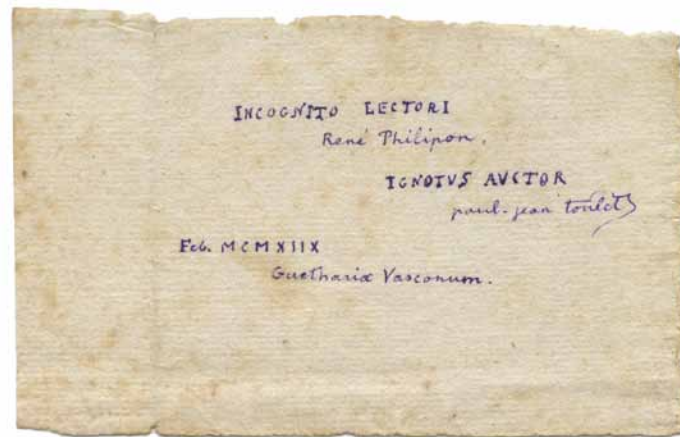 INCOGNITO LECTORI
René Philipon.
IGNOTVS AVCTOR
paul-jean toulet
Feb. MCMXIIX
Guethariæ Vasconum.